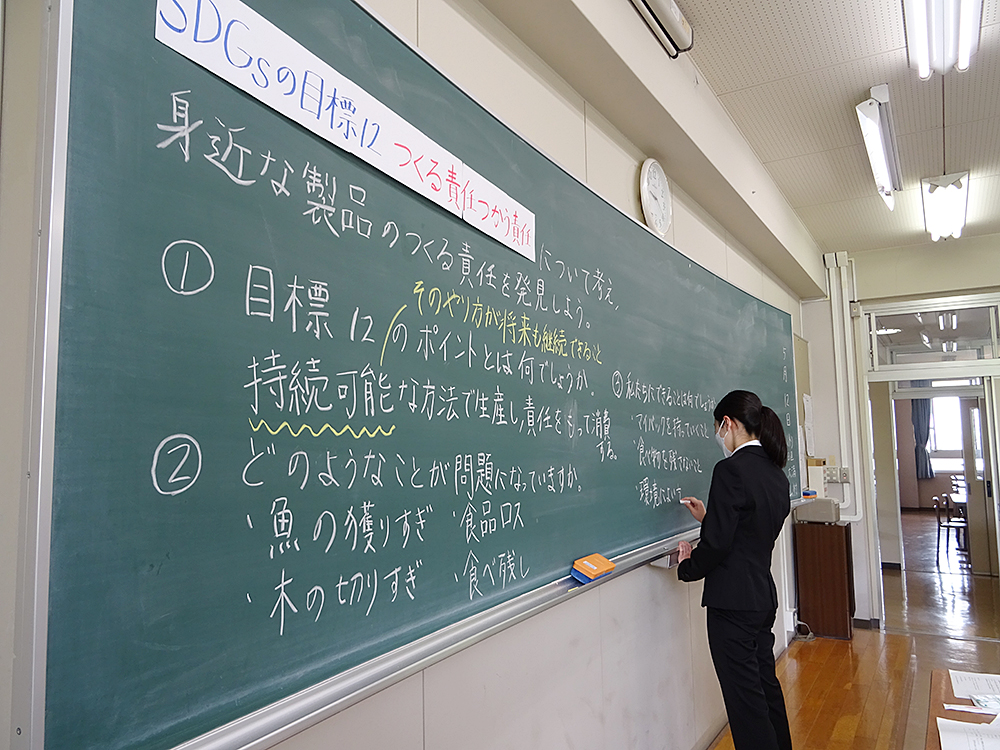 SDGsの目標12 つくる責任つかう責任
について考え、
身近な製品のつくる責任を発見しよう。
① 目標12のポイントとは何でしょうか。
そのやり方が将来も継続できること
持続可能な方法で生産し責任をもって消費
する。
② どのようなことが問題になっていますか。
・魚の獲りすぎ ・食品ロス
・木の切りすぎ ・食べ残し
③ 私たちにできることは何でしょうか
・マイバックを持っていくこと
・食べ物を残さないこと
・環境によい
5月12日